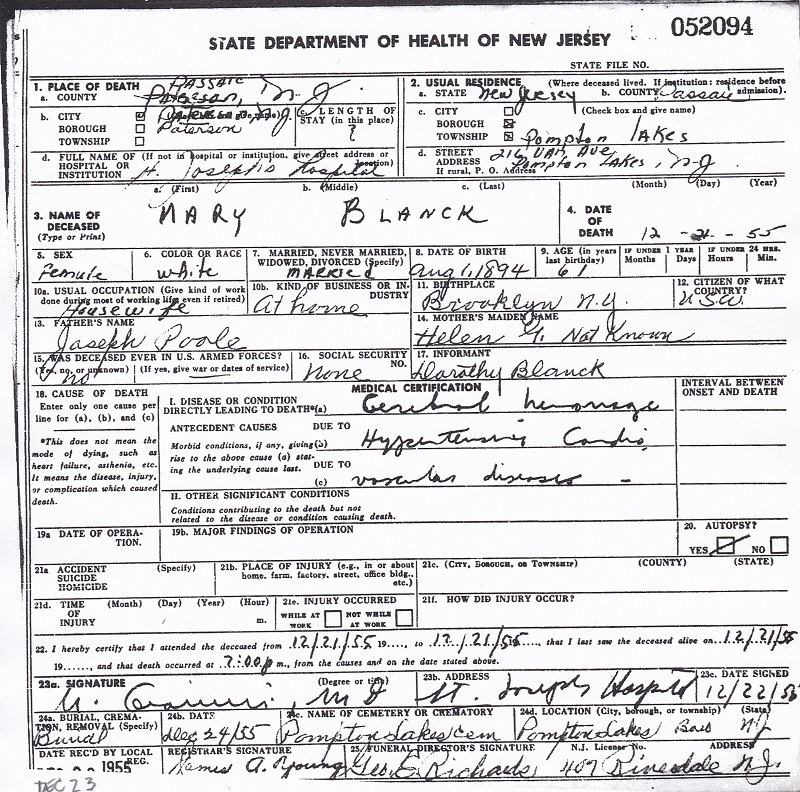 052094
STATE DEPARTMENT OF HEALTH OF NEW JERSEY
STATE FILE NO.
1. PLACE OF DEATH
a. COUNTY PASSAIC
Paterson, N-J
b. CITY
BOROUGH Paterson
TOWNSHIP
c. LENGTH OF STAY (in this place)
?
d. FULL NAME OF (If not in hospital or institution, give street address or location)
HOSPITAL OR
INSTITUTION St. Joseph's Hospital
2. USUAL RESIDENCE (Where deceased lived. If institution: residence before admission).
a. STATE New Jersey b. COUNTY Passaic
c. CITY (Check box and give name)
BOROUGH
TOWNSHIP Pompton Lakes
d. STREET 216 Van Ave
ADDRESS Pompton Lakes, N-J.
If rural, P. O. Address
a. (First) b. (Middle) c. (Last)
3. NAME OF DECEASED
(Type or Print)
MARY BLANCK
(Month) (Day) (Year)
4. DATE OF DEATH 12-21-55
5. SEX
Female
6. COLOR OR RACE
white
7. MARRIED, NEVER MARRIED, WIDOWED, DIVORCED (Specify)
MARRIED
8. DATE OF BIRTH
Aug 1, 1894
9. AGE (in years last birthday)
61
IF UNDER 1 YEAR
Months Days
IF UNDER 24 HRS.
Hours Min.
10a. USUAL OCCUPATION (Give kind of work done during most of working life even if retired)
Housewife
10b. KIND OF BUSINESS OR INDUSTRY
At home
11. BIRTHPLACE
Brooklyn N.Y.
12. CITIZEN OF WHAT COUNTRY?
13. FATHER'S NAME
Joseph Poole
14. MOTHER'S MAIDEN NAME
Helen Not Known
15. WAS DECEASED EVER IN U.S. ARMED FORCES?
(Yes, no, or unknown) (If yes, give war or dates of service)
no
16. SOCIAL SECURITY NO.
None
17. INFORMANT
Dorothy Blanck
18. CAUSE OF DEATH
Enter only one cause per line for (a), (b), and (c)
*This does not mean the mode of dying, such as heart failure, asthenia, etc. It means the disease, injury, or complication which caused death.
MEDICAL CERTIFICATION
I. DISEASE OR CONDITION
DIRECTLY LEADING TO DEATH*(a) Cerebral hemorrage
ANTECEDENT CAUSES DUE TO
Morbid conditions, if any, giving (b) Hypertensive Cardio
rise to the above cause (a) stating the underlying cause last. DUE TO
(c) vascular diseases -
II. OTHER SIGNIFICANT CONDITIONS
Conditions contributing to the death but not related to the disease or condition causing death.
INTERVAL BETWEEN ONSET AND DEATH
19a DATE OF OPERATION.
19b. MAJOR FINDINGS OF OPERATION
20. AUTOPSY?
YES NO
21a ACCIDENT SUICIDE HOMICIDE (Specify)
21b. PLACE OF INJURY (e.g., in or about home, farm, factory, street, office bldg., etc.)
21c. (CITY, BOROUGH, OR TOWNSHIP) (COUNTY) (STATE)
21d. TIME OF INJURY (Month) (Day) (Year) (Hour) m.
21e. INJURY OCCURRED
WHILE AT WORK NOT WHILE AT WORK
21f. HOW DID INJURY OCCUR?
22. I hereby certify that I attended the deceased from 12/21/55 19...., to 12/21/55, that I last saw the deceased alive on 12/21/55
19......, and that death occurred at 7:00 p m., from the causes and on the date stated above.
23a. SIGNATURE (Degree or title)
MD
23b. ADDRESS
St. Josephs Hospital
23c. DATE SIGNED
12/22/55
24a. BURIAL, CREMATION, REMOVAL (Specify)
Burial
24b. DATE
Dec 24/55
24c. NAME OF CEMETERY OR CREMATORY
Pompton Lakes Cem
24d. LOCATION (City, borough, or township) (State)
Pompton Lakes Boro NJ
DATE REC'D BY LOCAL REG.
1955
DEC 23
REGISTRAR'S SIGNATURE
James A. Young
25. FUNERAL DIRECTOR'S SIGNATURE
Geo E. Richards
N.J. License No.
407
ADDRESS
Riverdale N.J.